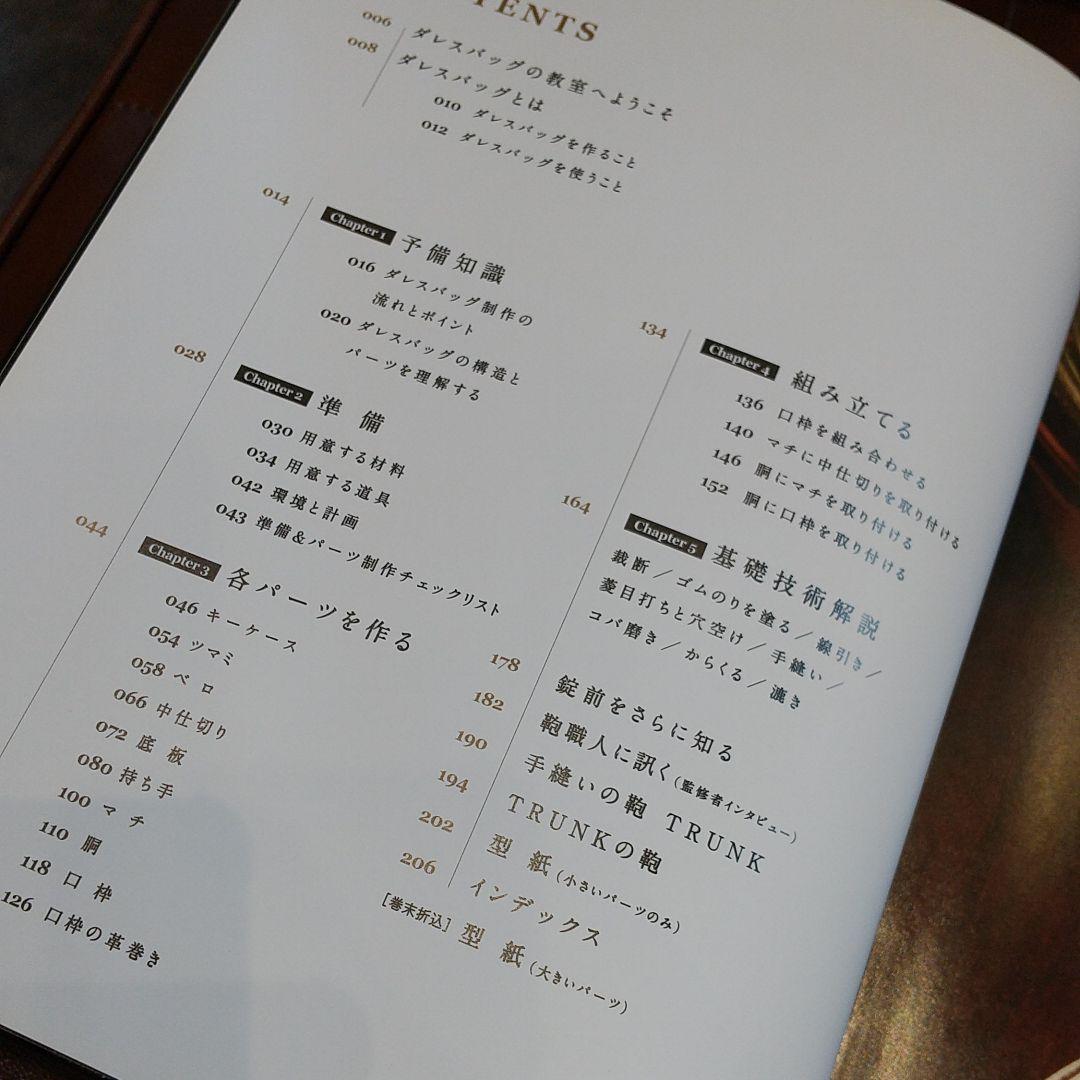 TENTS
006 ダレスバッグの教室へようこそ
008 ダレスバッグとは
010 ダレスバッグを作ること
012 ダレスバッグを使うこと
014 Chapter 1 予備知識
016 ダレスバッグ制作の
流れとポイント
020 ダレスバッグの構造と
パーツを理解する
028 Chapter 2 準備
030 用意する材料
034 用意する道具
042 環境と計画
043 準備&パーツ制作チェックリスト
044 Chapter 3 各パーツを作る
046 キーケース
054 ツマミ
058 ベロ
066 中仕切り
072 底板
080 持ち手
100 マチ
110 胴
118 口枠
126 口枠の革巻き
134 Chapter 4 組み立てる
136 口枠を組み合わせる
140 マチに中仕切りを取り付ける
146 胴にマチを取り付ける
152 胴に口枠を取り付ける
164 Chapter 5 基礎技術解説
裁断／ゴムのりを塗る／線引き／
菱目打ちと穴空け／手縫い／
コバ磨き／からくる／漉き
178 錠前をさらに知る
182 鞄職人に訊く(監修者インタビュー)
190 手縫いの鞄 TRUNK
194 TRUNKの鞄
202 型紙(小さいパーツのみ)
206 インデックス
[巻末折込] 型紙(大きいパーツ)